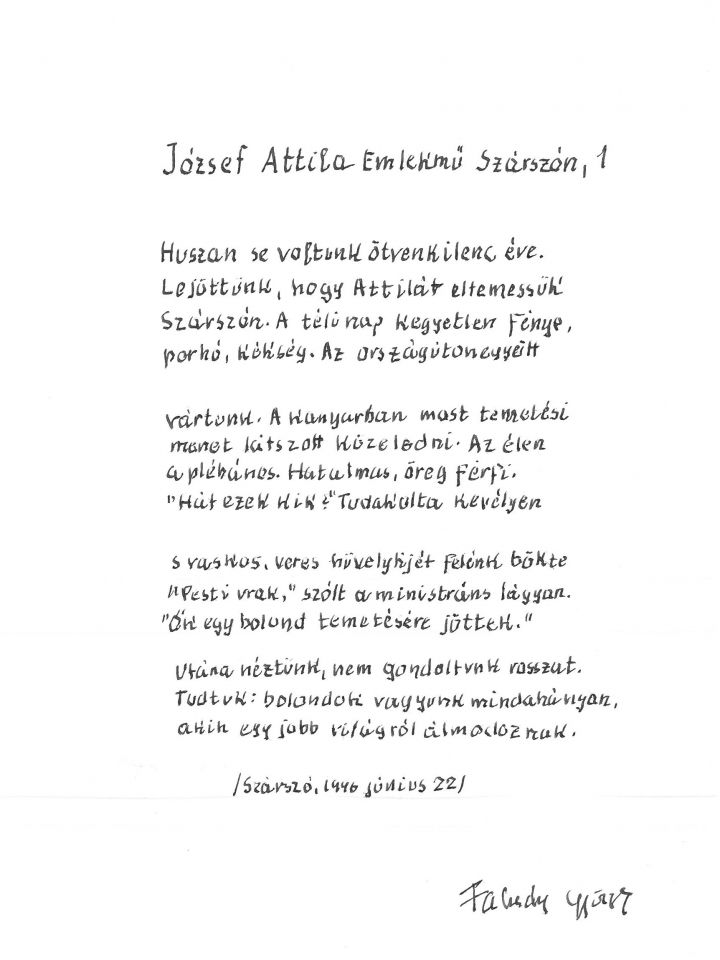 József Attila Emlekmű Szárszón, 1
Huszan se voltunk ötvenkilenc éve.
Lejöttünk, hogy Attilát eltemessük
Szárszón. A téli nap kegyetlen fénye,
porhó, kékség. Az országúton együtt
vártunk. A kanyarban most temetési
menet látszott közeledni. Az élen
a plébános. Hatalmas, öreg férfi.
"Hát ezek kik?" Tudakolta kevélyen
s vaskos, veres hüvelykjét felénk bökte
"Pesti urak," szólt a ministráns lágyan.
"Ők egy bolond temetésére jöttek."
Utána néztünk, nem gondoltunk rosszat.
Tudtuk: bolondok vagyunk mindahányan,
akik egy jobb világról álmodoznak.
/Szárszó, 1996 június 22/
Faludy György